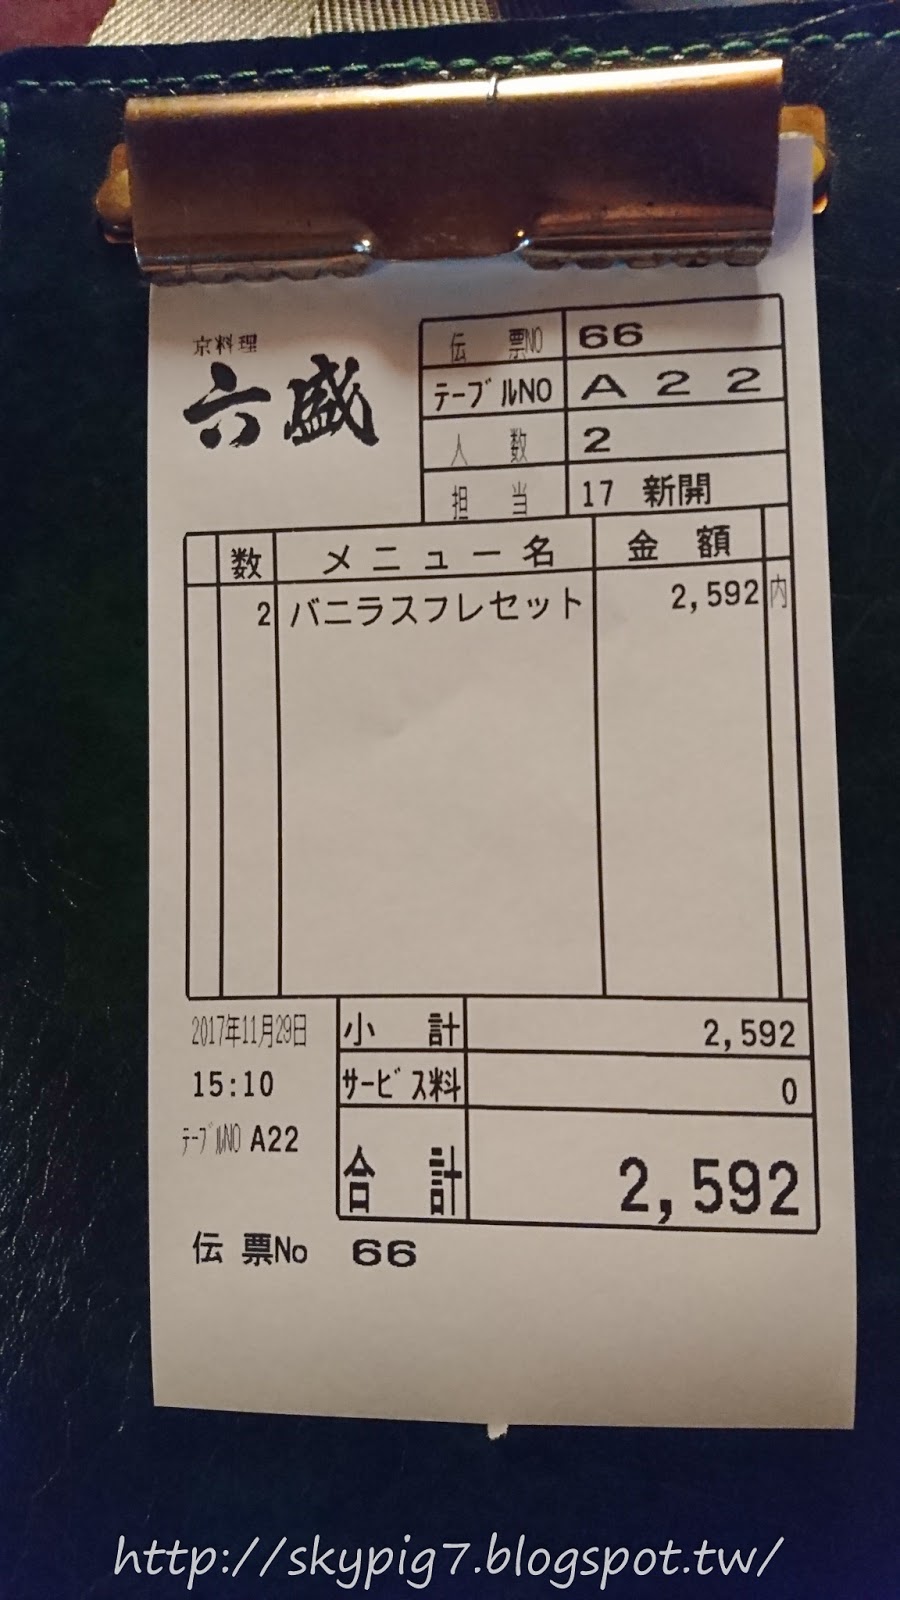 京料理
六盛
伝票NO 66
テーブルNO A22
人数 2
担当 17 新開
数 メニュー名 金額
2 バニラスフレセット 2,592 内
2017年11月29日
15:10
テーブルNO A22
小計 2,592
サービス料 0
合計 2,592
伝票No 66
http://skypig7.blogspot.tw/